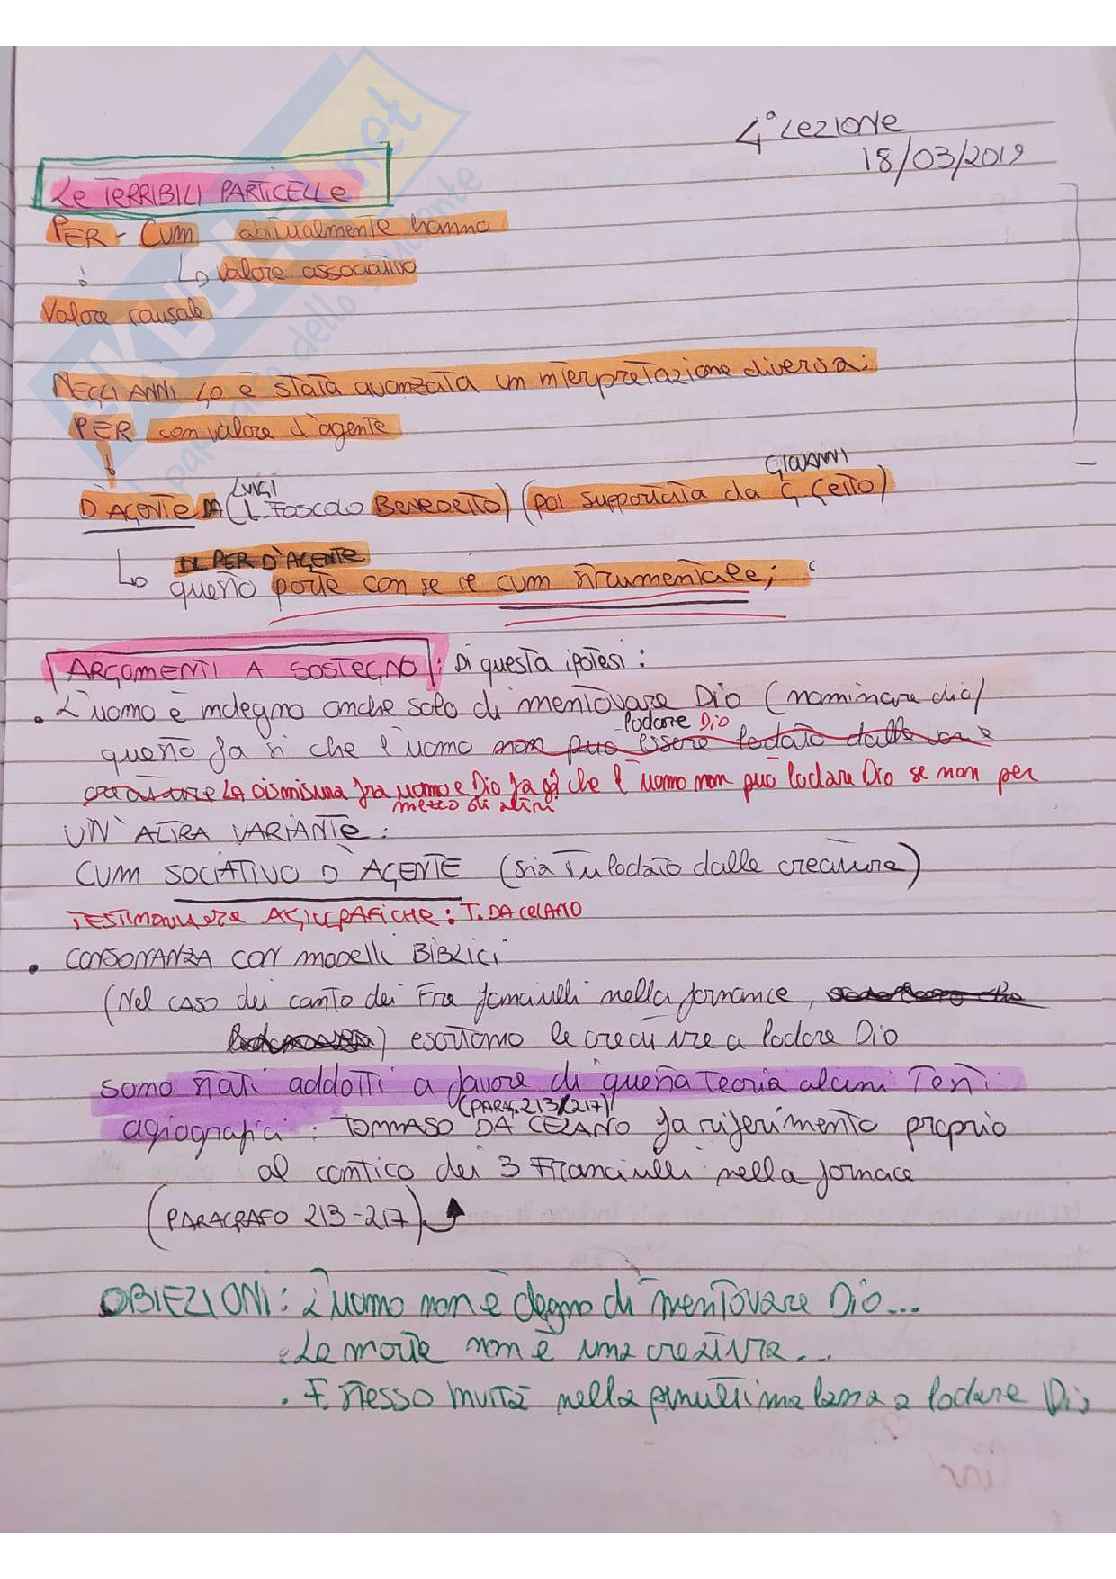 4° Lezione
18/03/2019
Le TERRIBILI PARTICELLe
PER - CUM attualmente hanno
↳ Valore associativo
Valore causale
NEGLI ANNI 40 è stata avanzata un interpretazione diversa:
PER con valore d'agente
GIOVANNI
LUIGI
D'AGENTE DA (L. Foscolo BENEDETTO) (poi supportata da G. Getto)
IL PER D'AGENTE
↳ questo porta con se il cum strumentale;
ARGOMENTI A SOSTEGNO: Di questa ipotesi:
• L'uomo è indegno anche solo di mentovare Dio (nominare dio)
lodare Dio
questo fa si che l'uomo non può essere lodato dalle
creature La dismisura fra uomo e Dio fa si che l'uomo non può lodare Dio se non per
mezzo di altri
UN'ALTRA VARIANTE:
CUM SOCIATIVO D'AGENTE (sia tu lodato dalle creature)
TESTIMONIANZE AGIOGRAFICHE: T. DA CELANO
• CONSONANZA CON modelli BIBLICI
(Nel caso dei canto dei Fra fanciulli nella fornance,
) esortano le creature a lodare Dio
sono stati addotti a favore di questa Teoria alcuni Testi
(PARAG. 213/217)
agiografici: TOMMASO DA CELANO fa riferimento proprio
al cantico dei 3 Franciulli nella fornace
(PARAGRAFO 213-217)
OBIEZIONI: L'uomo non è degno di mentovare Dio...
• La morte non è una creatura...
• F. stesso invita nella penultima lassa a lodare Dio